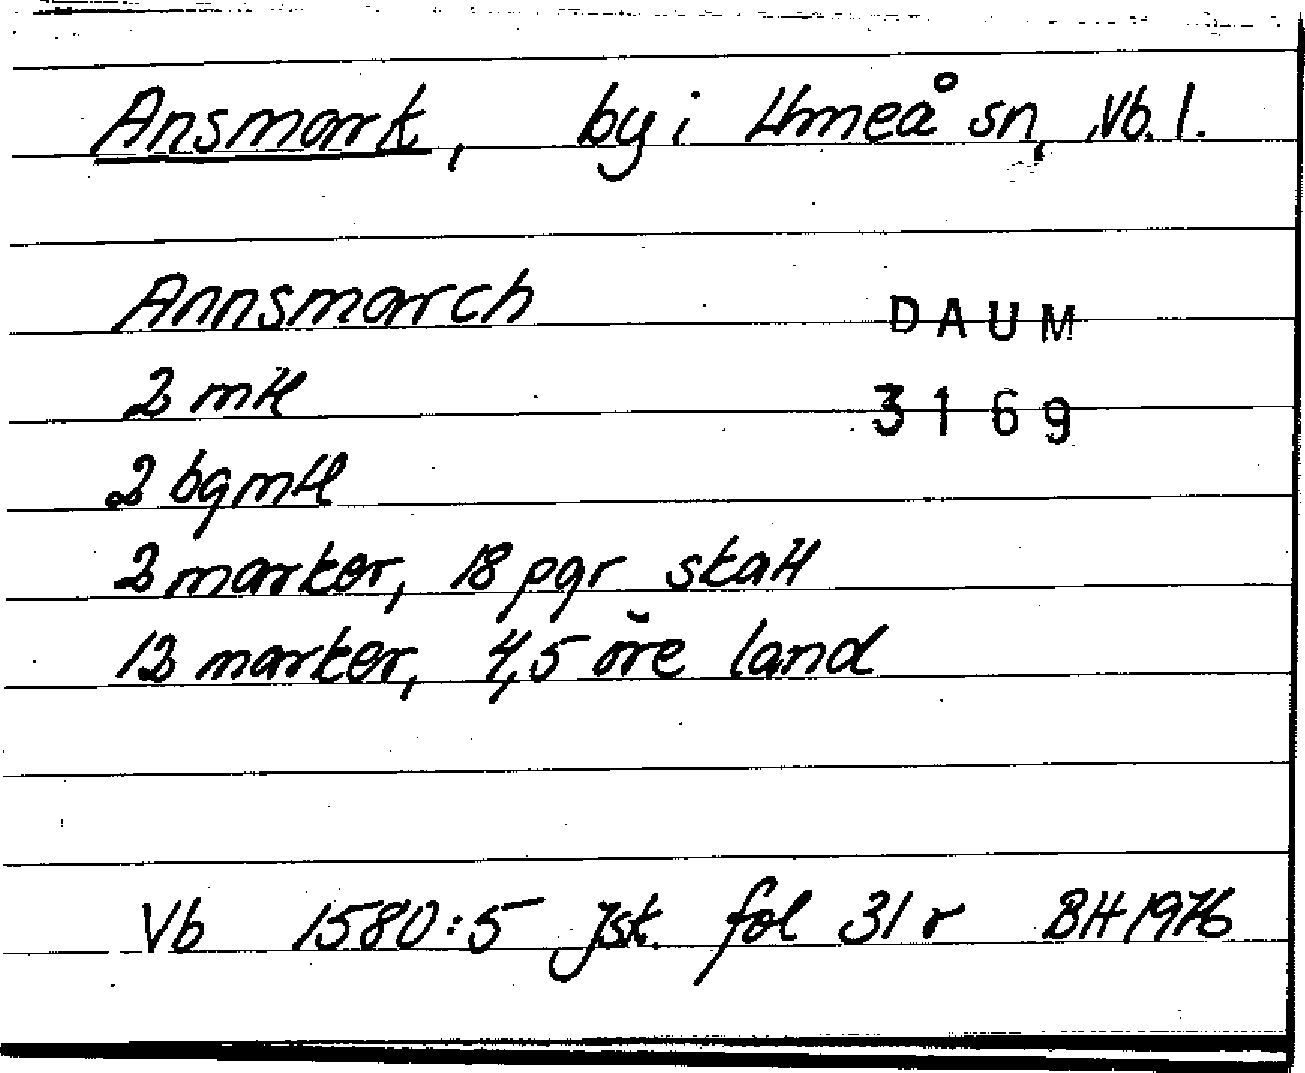 Ansmark, by i Umeå sn, Vb. l.
Annsmarch
DAUM
2 mtl
3169
2 bgmtl
2 marker, 18 pgr skatt
12 marker, 4,5 öre land
Vb 1580:5 Jsk. fol 31 r BH 1976